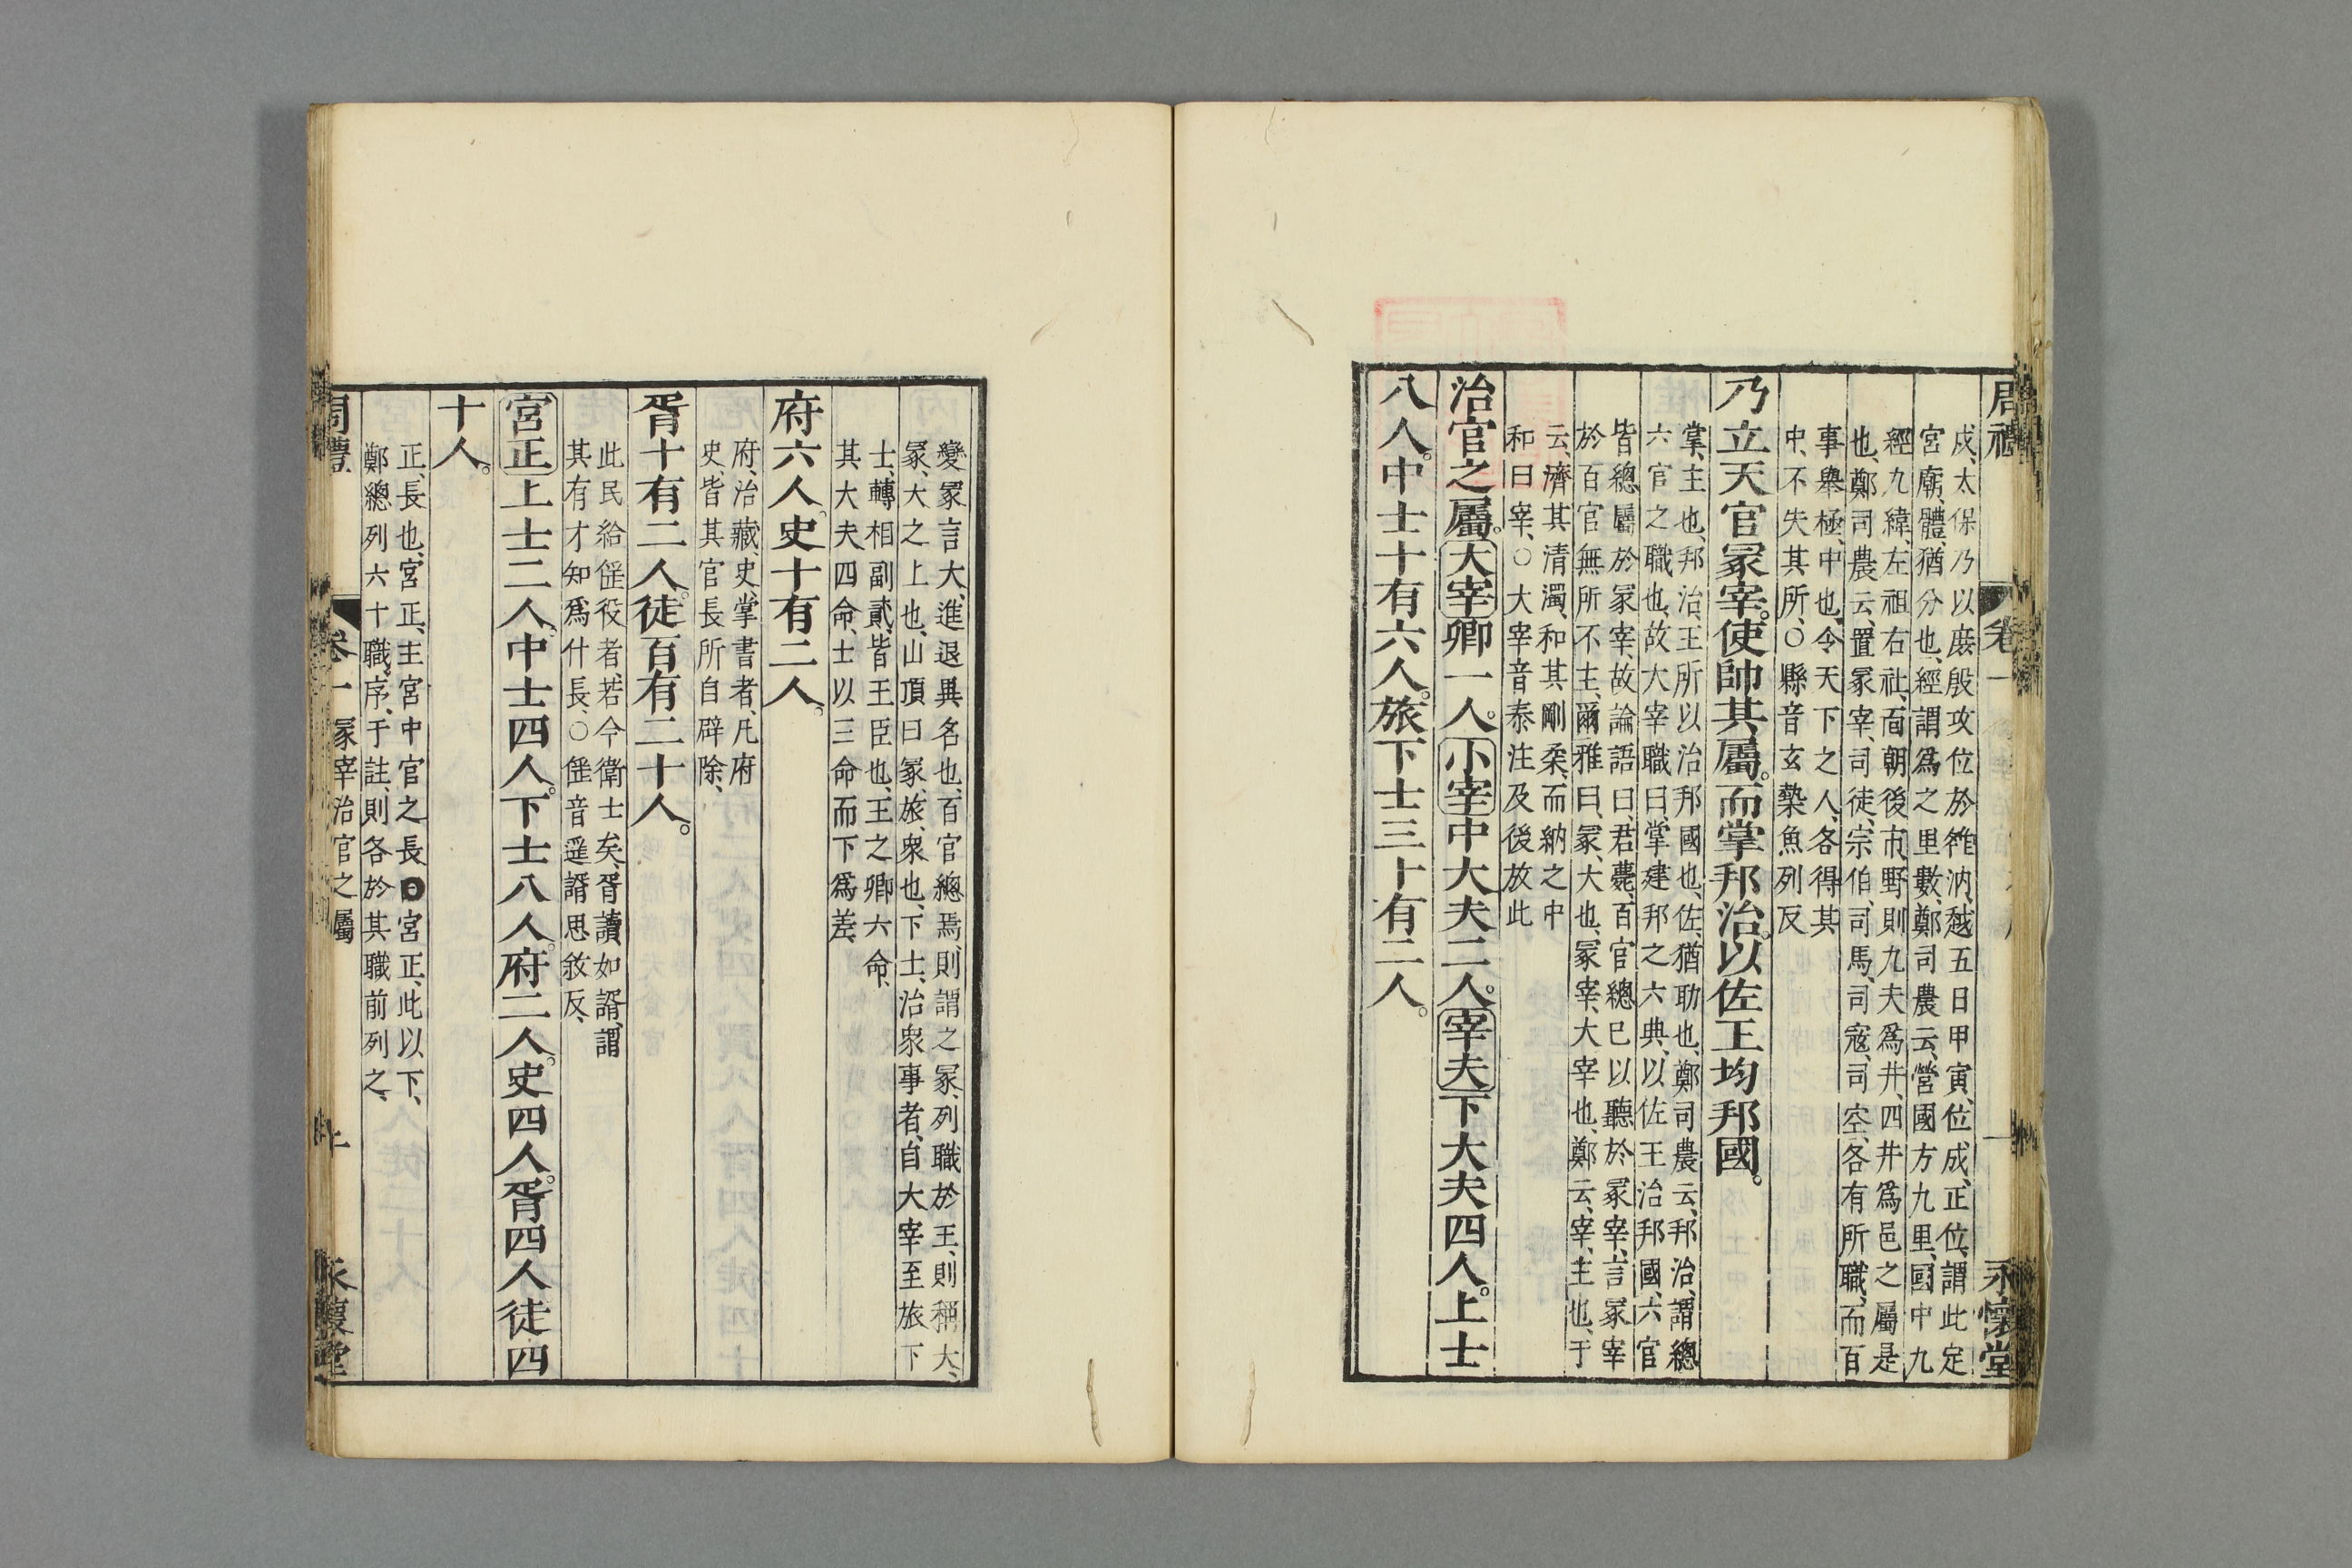 周禮 卷一 一 永懷堂
戌、太保乃以庶殷攻位於雒汭、越五日甲寅、位成、正位、謂此定
宮廟、體、猶分也、經、謂爲之里數、鄭司農云、營國方九里、國中九
經九緯、左祖右社、面朝後市、野則九夫爲井、四井爲邑之屬是
也、鄭司農云、置冢宰、司徒、宗伯、司馬、司寇、司空、各有所職、而百
事舉、極、中也、令天下之人、各得其
中、不失其所、○縣音玄槷魚列反
乃立天官冢宰。使帥其屬。而掌邦治。以佐王均邦國。
掌、主也、邦治、王所以治邦國也、佐、猶助也、鄭司農云、邦治、謂總
六官之職也、故大宰職曰、掌建邦之六典、以佐王治邦國、六官
皆總屬於冢宰、故論語曰、君薨、百官總巳以聽於冢宰、言冢宰
於百官無所不主、爾雅曰、冢、大也、冢宰、大宰也、鄭云、宰、主也、于
云、濟其清濁、和其剛柔、而納之中
和曰宰、○大宰音泰注及後放此
治官之屬。大宰卿一人。小宰中大夫二人。宰夫下大夫四人。上士
八人。中士十有六人。旅下士三十有二人。
變冢言大、進退異名也、百官總焉、則謂之冢、列職於王、則稱大、
冢、大之上也、山頂曰冢、旅、衆也、下士、治衆事者、自大宰至旅下
士、轉相副貳、皆王臣也、王之卿六命、
其大夫四命、士以三命而下爲差、
府六人。史十有二人。
府、治藏、史、掌書者、凡府
史、皆其官長所自辟除、
胥十有二人。徒百有二十人。
此民給徭役者、若今衛士矣、胥讀如諝、謂
其有才知爲什長、○徭音遥諝思敘反、
宮正上士二人。中士四人。下士八人。府二人。史四人。胥四人徒四
十人。
正、長也、宮正、主宮中官之長●宮正、此以下、
鄭總列六十職序、于註、則各於其職前列之、
周禮 卷一 冢宰治官之屬 永懷堂